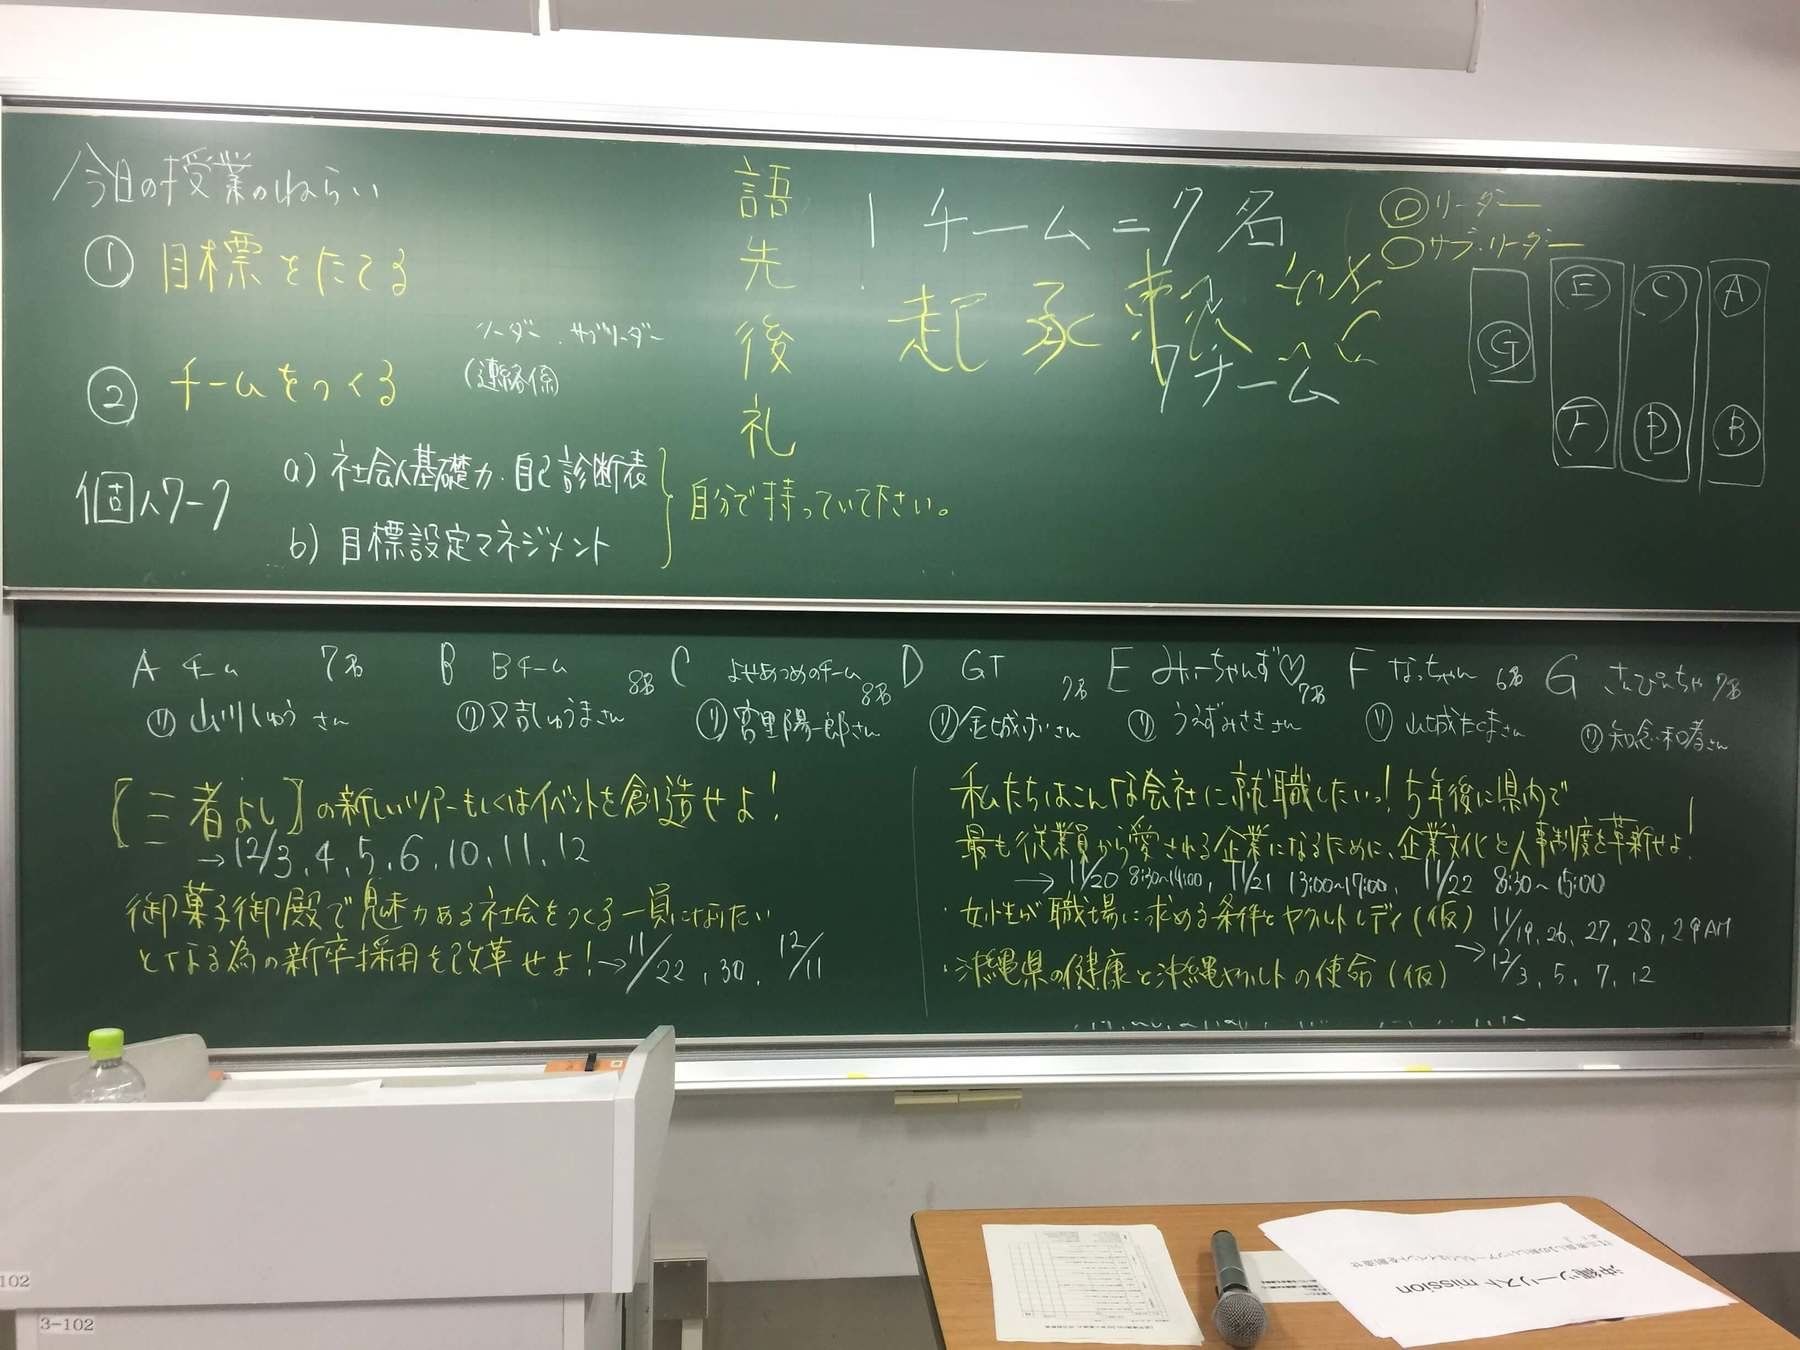 今日の授業のねらい
① 目標をたてる
② チームをつくる
リーダー . サブリーダー
(連絡係)
個人ワーク
a) 社会人基礎力.自己診断表
b) 目標設定マネジメント
自分で持っていて下さい。
語先後礼
1チーム=7名
起承転結
7チーム
◎リーダー
○サブ.リーダー
G E C A
F D B
A チーム 7名
リ 山川しゅうさん
B Bチーム 8名
リ 又吉しゅうまさん
C よせあつめのチーム 8名
リ 宮里陽一郎さん
D GT 7名
リ 金城
E みーちゃんず♡ 7名
リ うえずみさきさん
F なっちゃん 6名
リ 山城たくまさん
G さんぴんちゃ 7名
リ 知念
[三者よし]の新しいツアーもしくはイベントを創造せよ!
→12/3, 4, 5, 6, 10, 11, 12
御菓子御殿で魅力ある社会をつくる一員になりたい
となる為の新卒採用を改革せよ!→11/22, 30, 12/11
私たちはこんな会社に就職したいっ! 5年後に県内で
最も従業員から愛される企業になるために、企業文化と人事制度を革新せよ!
→ 11/20 8:30~14:00, 11/21 13:00~17:00, 11/22 8:30~15:00
・女性が職場に求める条件とヤクルトレディ(仮) 11/19, 26, 27, 28, 29AM
・沖縄県の健康と沖縄ヤクルトの使命(仮) →12/3, 5, 7, 12
3-102
沖縄ツーリスト mission